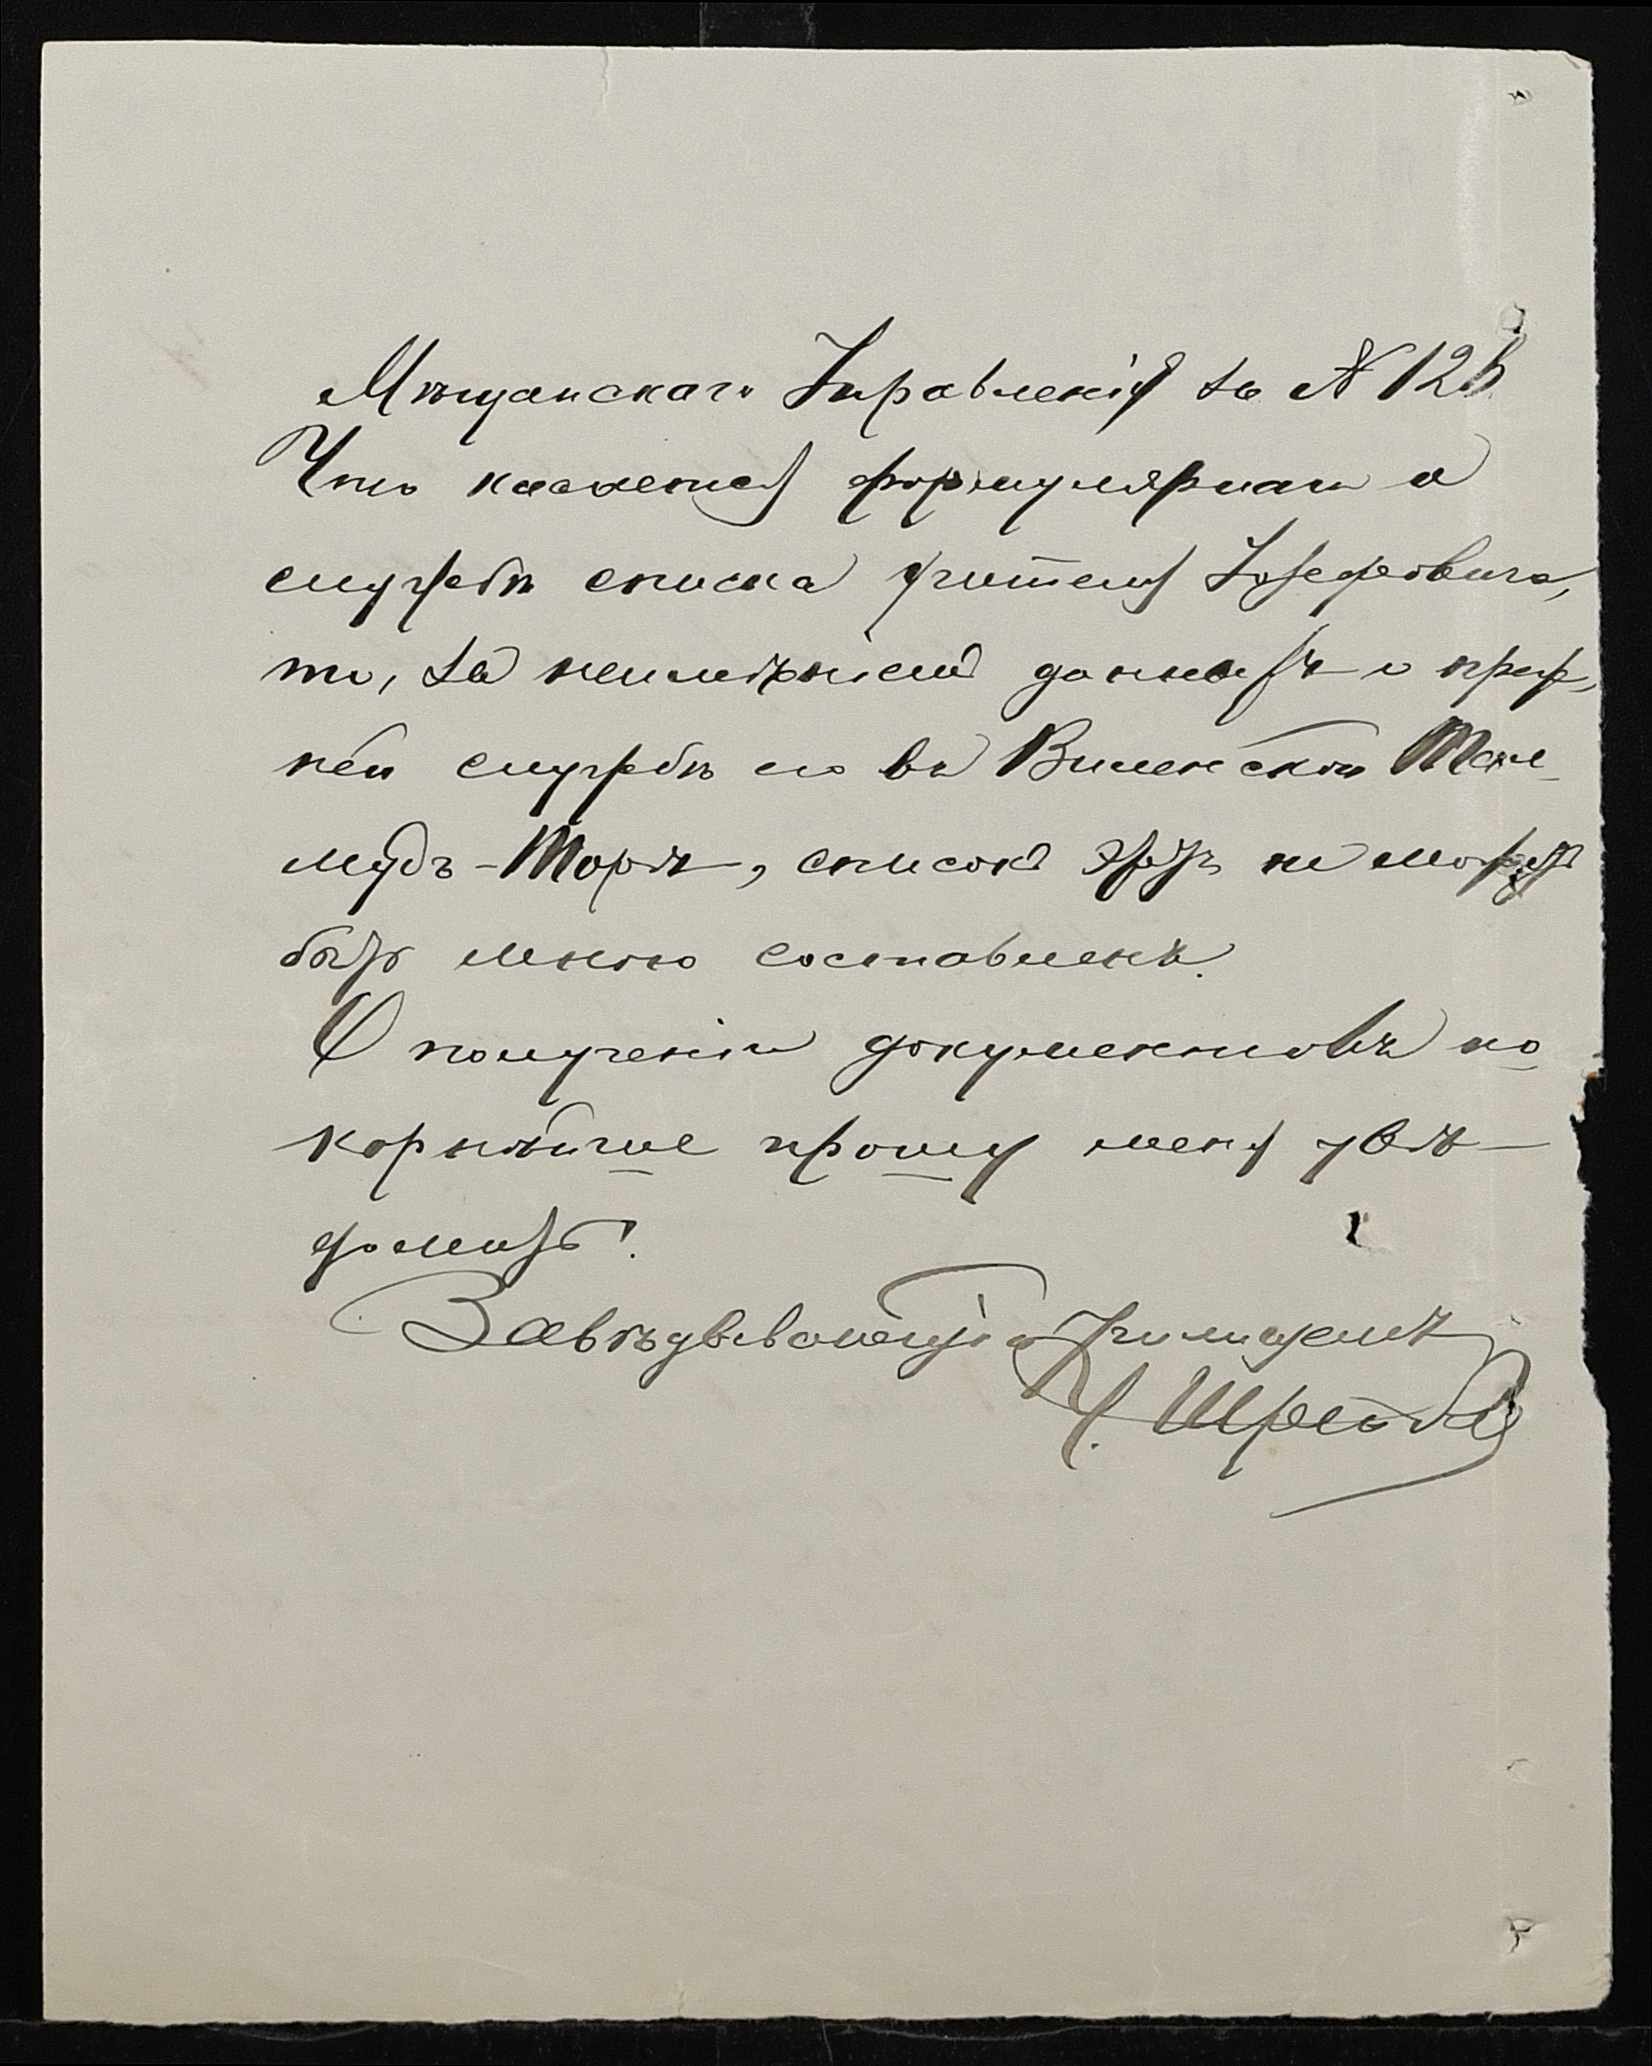 Мѣщанскаго Управленія за №
Что касается формулярнаго о
службѣ списка учителя Іозефовича,
то, за неимѣніемъ данныхъ о преж-
ней службѣ его въ Виленской Тал-
мудъ-Торѣ, списокъ этотъ не можетъ
быть мною составленъ.
О полученіи документовъ по-
корнѣйше прошу меня увѣ-
домить.
Завѣдывающій Училищемъ